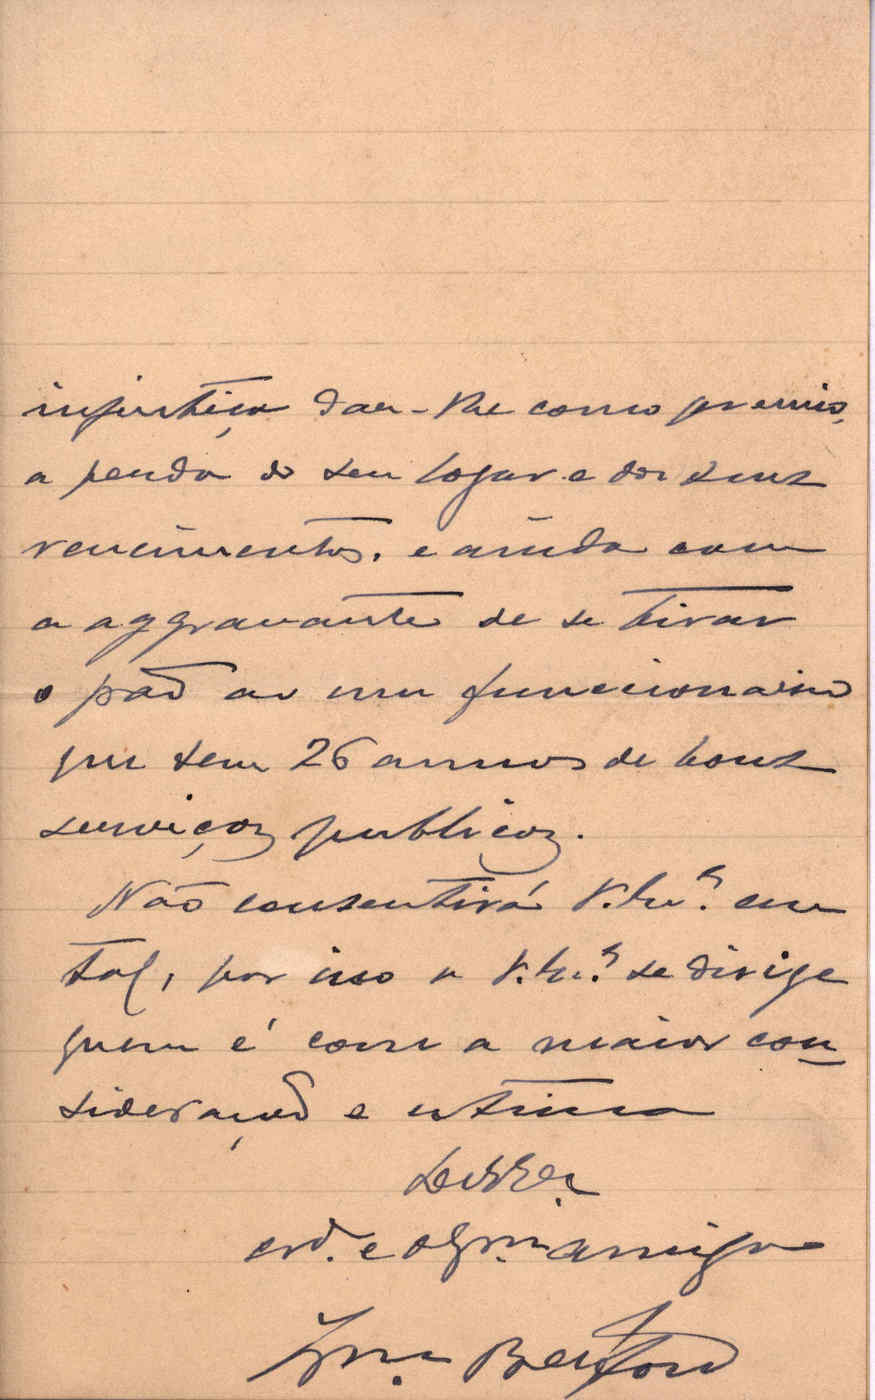 injustiça dar-lhe como premio,
a perda do seu logar e dos seus
vencimentos, e ainda com
a aggravante de se tirar
o pão ao um funccionario
que tem 26 annos de bons
serviços publicos.
Não consentirá V. Exª. em
tal, por isso a V. Exª. se dirige
quem é com a maior con-
sideração e estima
De V. Exª.
crd. e obgmº. amigo